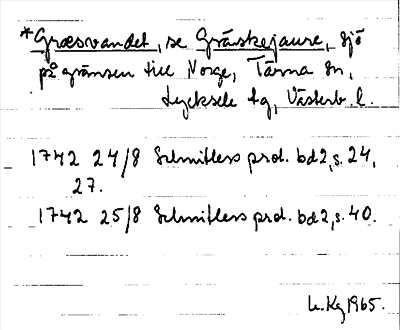 *Græsvandet, se Gräskejaure, sjö
på gränsen till Norge, Tärna sn,
Lycksele tg, Västerb. l.
1742 24/8 Schnitlers prot. bd 2, s. 24,
27.
1742 25/8 Schnitlers prot. bd 2, s. 40.
1965.